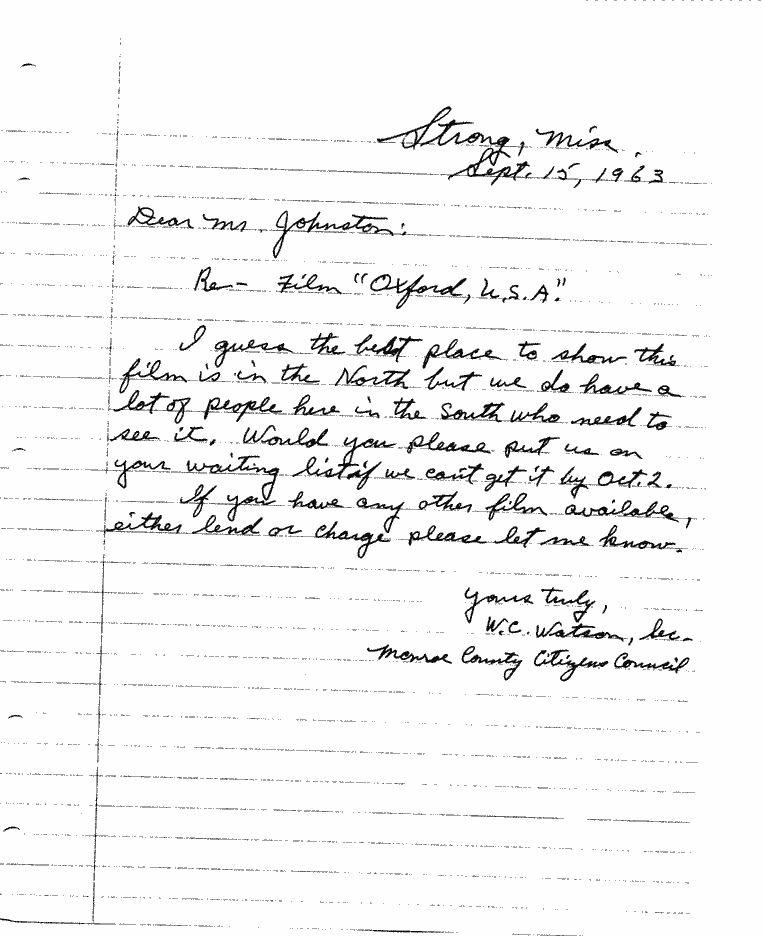 Strong, Miss.
Sept. 15, 1963
Dear Mr. Johnston:
Re— Film "Oxford, U.S.A."
I guess the best place to show this
film is in the North but we do have a
lot of people here in the South who need to
see it. Would you please put us on
your waiting list if we can't get it by Oct. 2.
If you have any other film available,
either lend or charge please let me know.
Yours truly,
W.C. Watson, Sec—
Monroe County Citizens Council